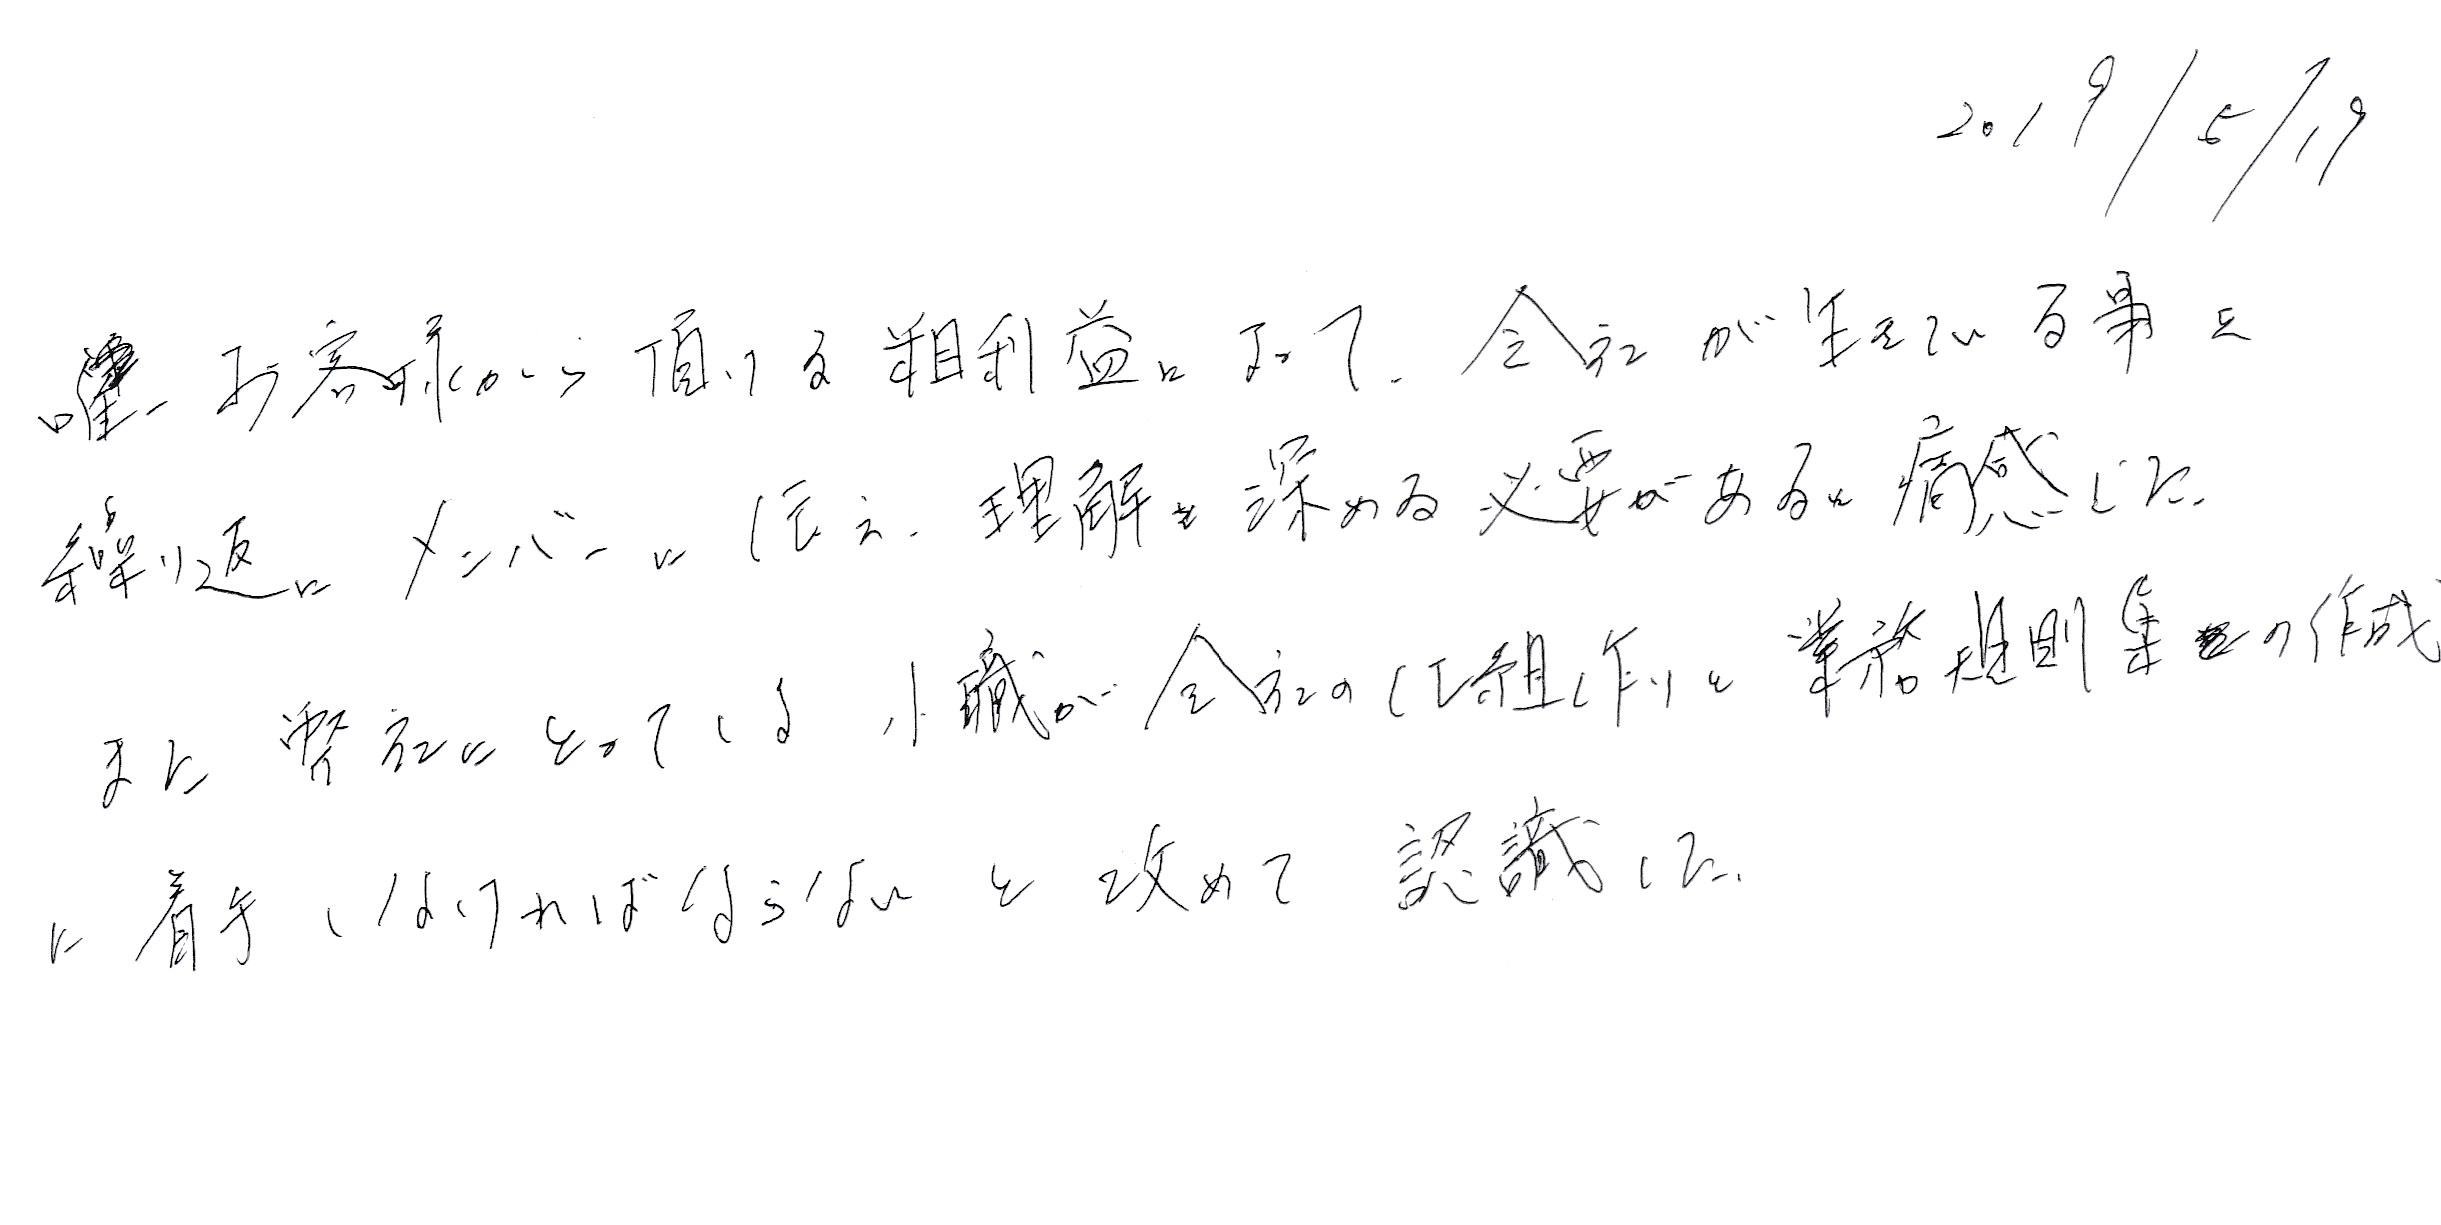 2019/5/19
唯一お客様から頂ける粗利益によって、会社が生きている事を
繰り返しメンバーに伝え、理解を深める必要があると痛感した。
また弊社にとっている小職が会社の仕組作りと業務規則集の作成
に着手しなければならないと改めて認識した。